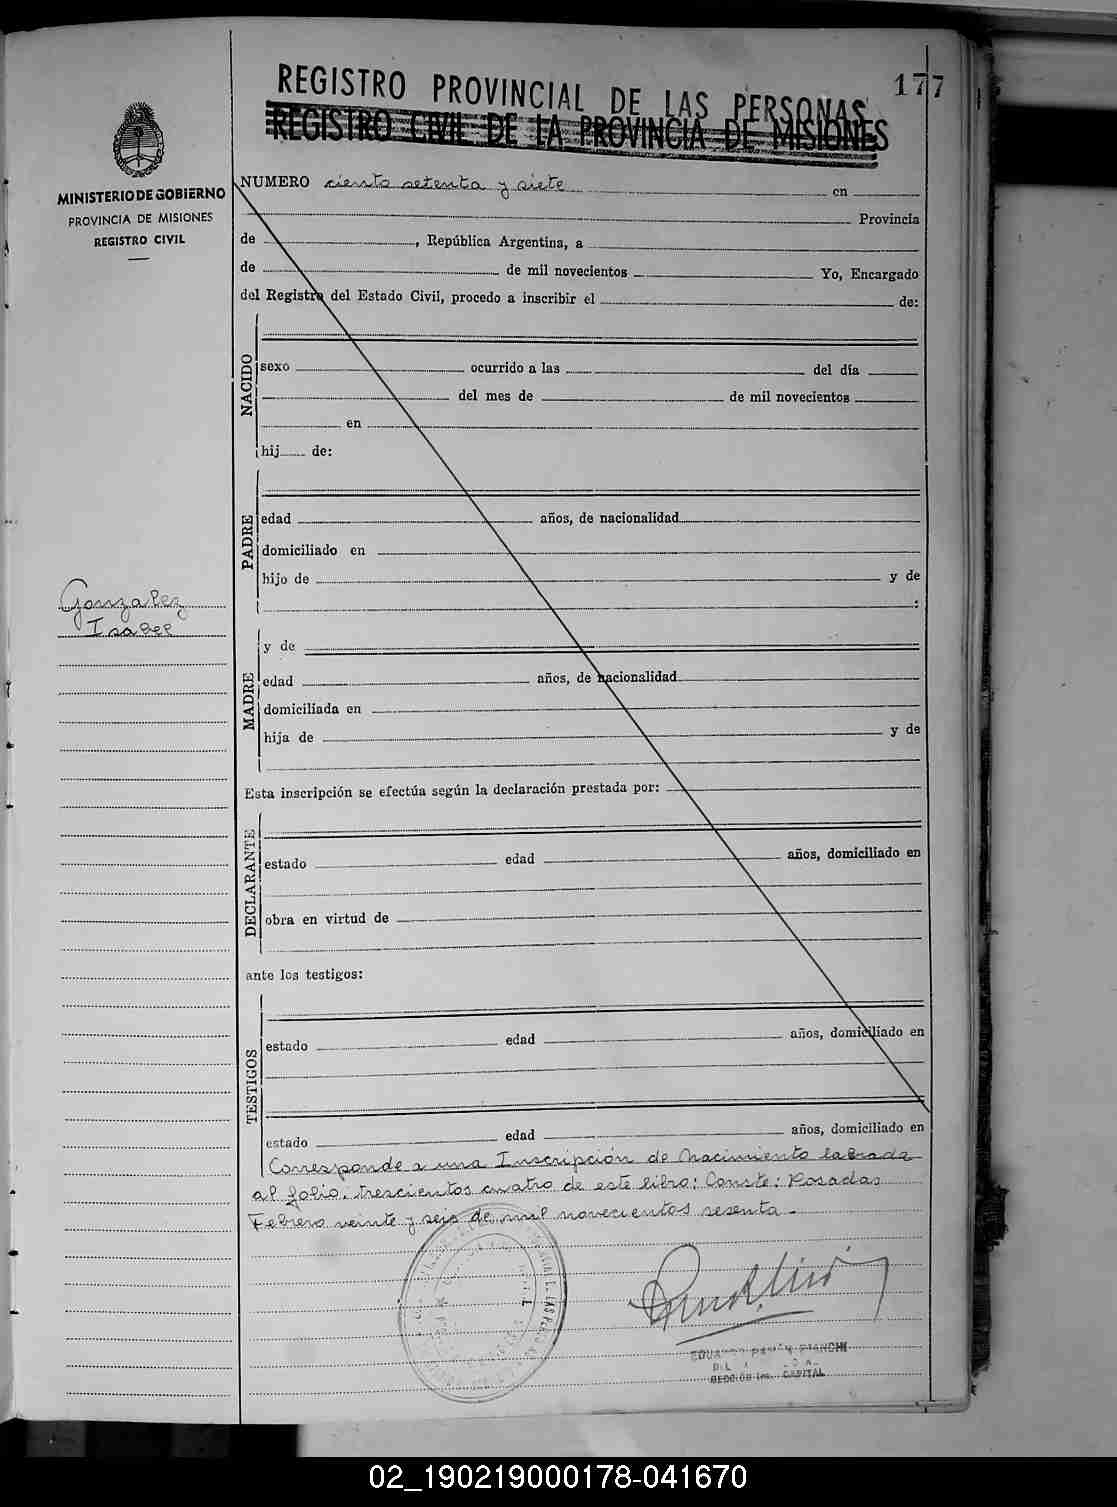 177
REGISTRO PROVINCIAL DE LAS PERSONAS
REGISTRO CIVIL DE LA PROVINCIA DE MISIONES
MINISTERIO DE GOBIERNO
PROVINCIA DE MISIONES
REGISTRO CIVIL
Gonzalez
Isabel
NUMERO ciento setenta y siete en
Provincia
de , República Argentina, a
de de mil novecientos Yo, Encargado
del Registro del Estado Civil, procedo a inscribir el de:
NACIDO
sexo ocurrido a las del día
del mes de de mil novecientos
en
hij de:
PADRE
edad años, de nacionalidad
domiciliado en
hijo de y de
:
MADRE
y de
edad años, de nacionalidad
domiciliada en
hija de y de
Esta inscripción se efectúa según la declaración prestada por:
DECLARANTE
estado edad años, domiciliado en
obra en virtud de
ante los testigos:
TESTIGOS
estado edad años, domiciliado en
estado edad años, domiciliado en
Corresponde a una Inscripción de Nacimiento labrada
al folio, trescientos cuatro de este libro: Conste: Posadas
Febrero veinte y seis de mil novecientos sesenta.-
EDUARDO BIANCHI
SECCION CAPITAL
02_190219000178-041670